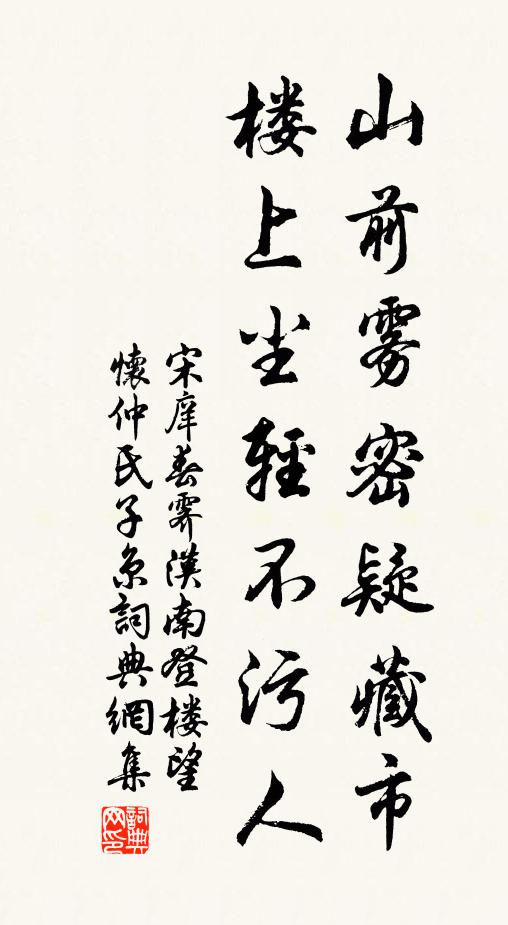 山前雾密疑藏市
楼上尘轻不污人
宋庠春霁漢南登楼望
懷仲氏子京詞典網集
詞典网印